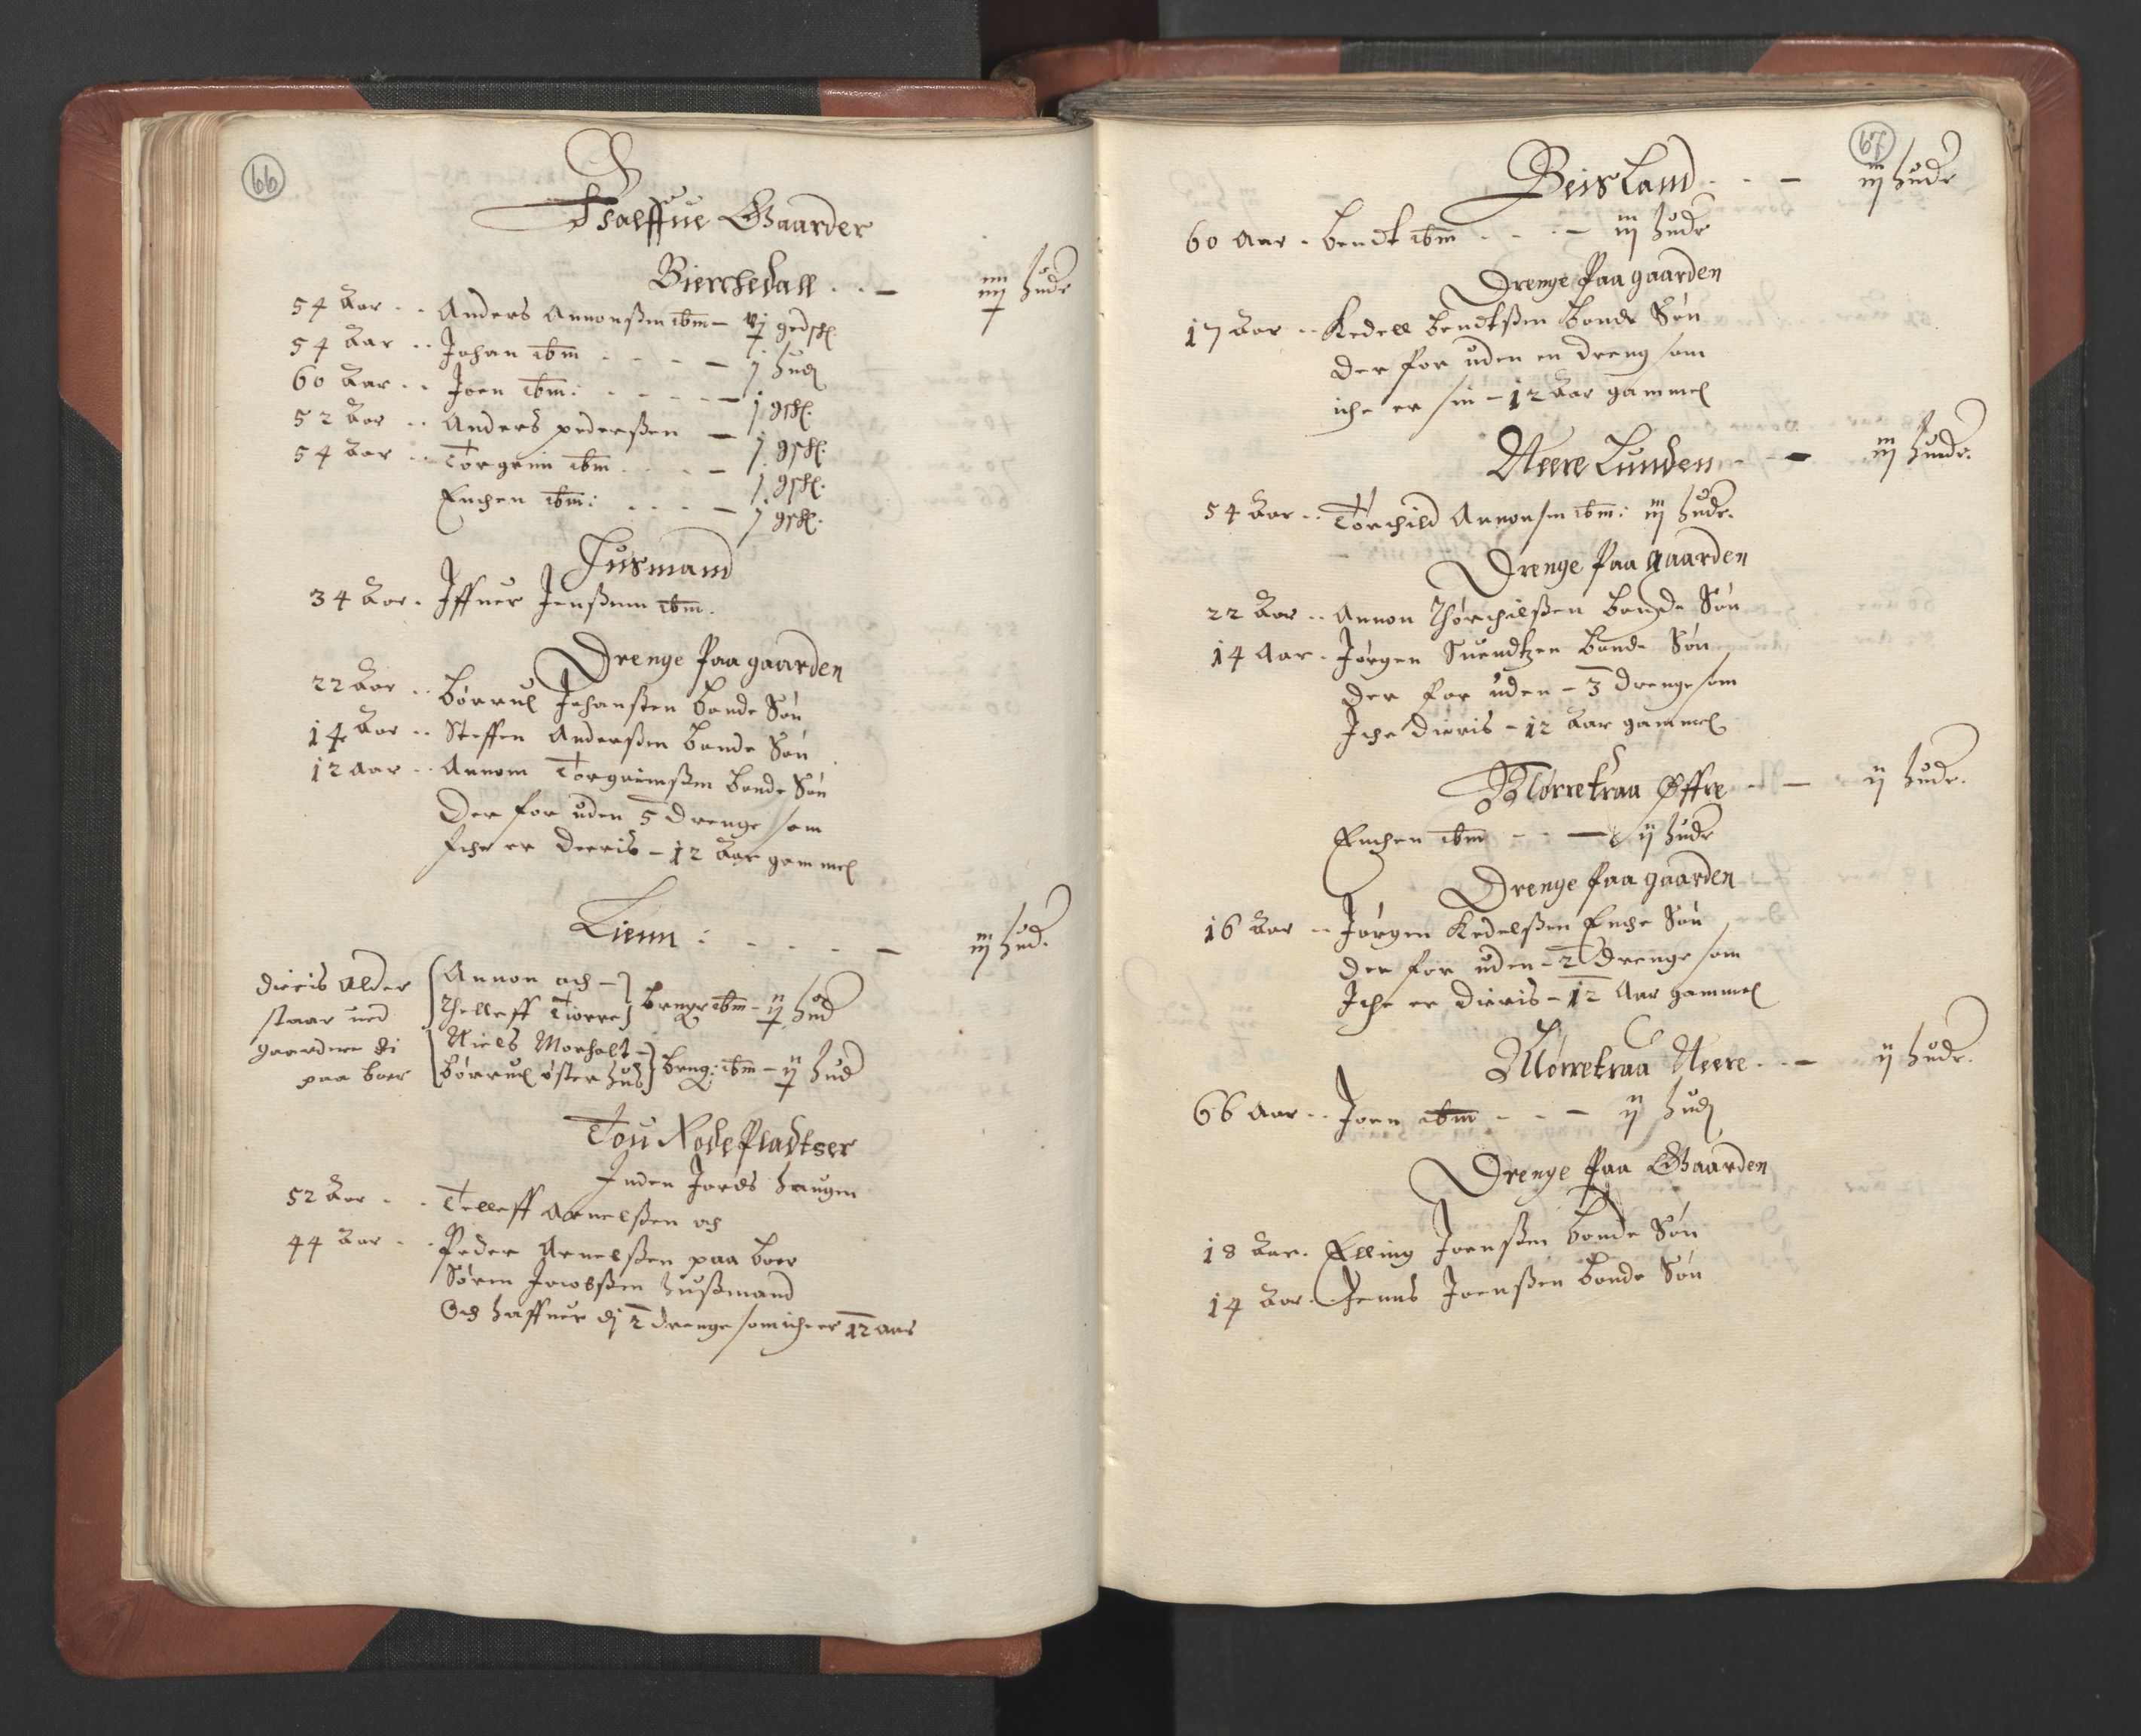 66
Halffue Gaarder
Bierchedall . . —
54 Aar . . Anders Annonßen ibm — gedsk.
54 Aar . . Johan ibm . . . . — j hud
60 Aar . . Joen ibm: . . . . — j gsk.
52 Aar . . Anders pederßen — j gsk.
54 Aar . . Torgrim ibm . . . . — j gsk.
Enchen ibm: . . . . — j gsk.
hudr
Husmand
34 Aar . Iffuer Jenßenn ibm.
Drenge Paa gaarden
22 Aar . . Børruel Johanßen bonde Søn
14 Aar . . Steffen Anderßen bonde Søn
12 Aar . . Annom Torgrimßen bonde Søn
Der for uden 5 Drenge som
Iche er Deeris — 12 Aar gammel
Lienn : . . . . — iij hud.
Dieris Alder
staar ued
gaardene di
paa boer
Annon och —
Thelleff Tiorre brugr ibm — hud
Niels Morholt —
Børruel østerhuß brug: ibm — hud
Tou Rødepladtser
Inden Jords haugen
52 Aar . . Telleff Arnelßen och
44 Aar . . Peder Arnelßen paa boer
Søren Jacobßen hußmand
Och haffuer dj 2 drenge som iche er 12 aar
67
Beisland . . — iij hudr
60 Aar . Bendt ibm . . . — iij hudr
Drenge Paa gaarden
17 Aar . . Kedell Bendtßen bonde Søn
der for uden en dreng som
iche er sin — 12 Aar gammel
Neere Lunden . . — iij hudr.
54 Aar . . Torchild Annonsen ibm: iij hudr.
Drenge Paa gaarden
22 Aar . . Annon Thorchilßen bonde Søn
14 Aar . Jørgen Suendtzen bonde Søn
der for uden — 3 drenge som
Iche dieris — 12 Aar gammel
Mørretraa Øffre . . — ij hudr.
Enchen ibm . . . — ij hudr
Drenge paa gaarden
16 Aar . . Jørgen Kedelßen Enche Søn
der for uden — 2 drenge som
Iche er dieris — 12 Aar gammel
Mørretraa Neere . . — ij hudr.
66 Aar . . Joen ibm . . . — ij hud
Drenge Paa Gaarden
18 Aar . Elling Joenßen bonde Søn
14 Aar . Jenns Joenßen bonde Søn